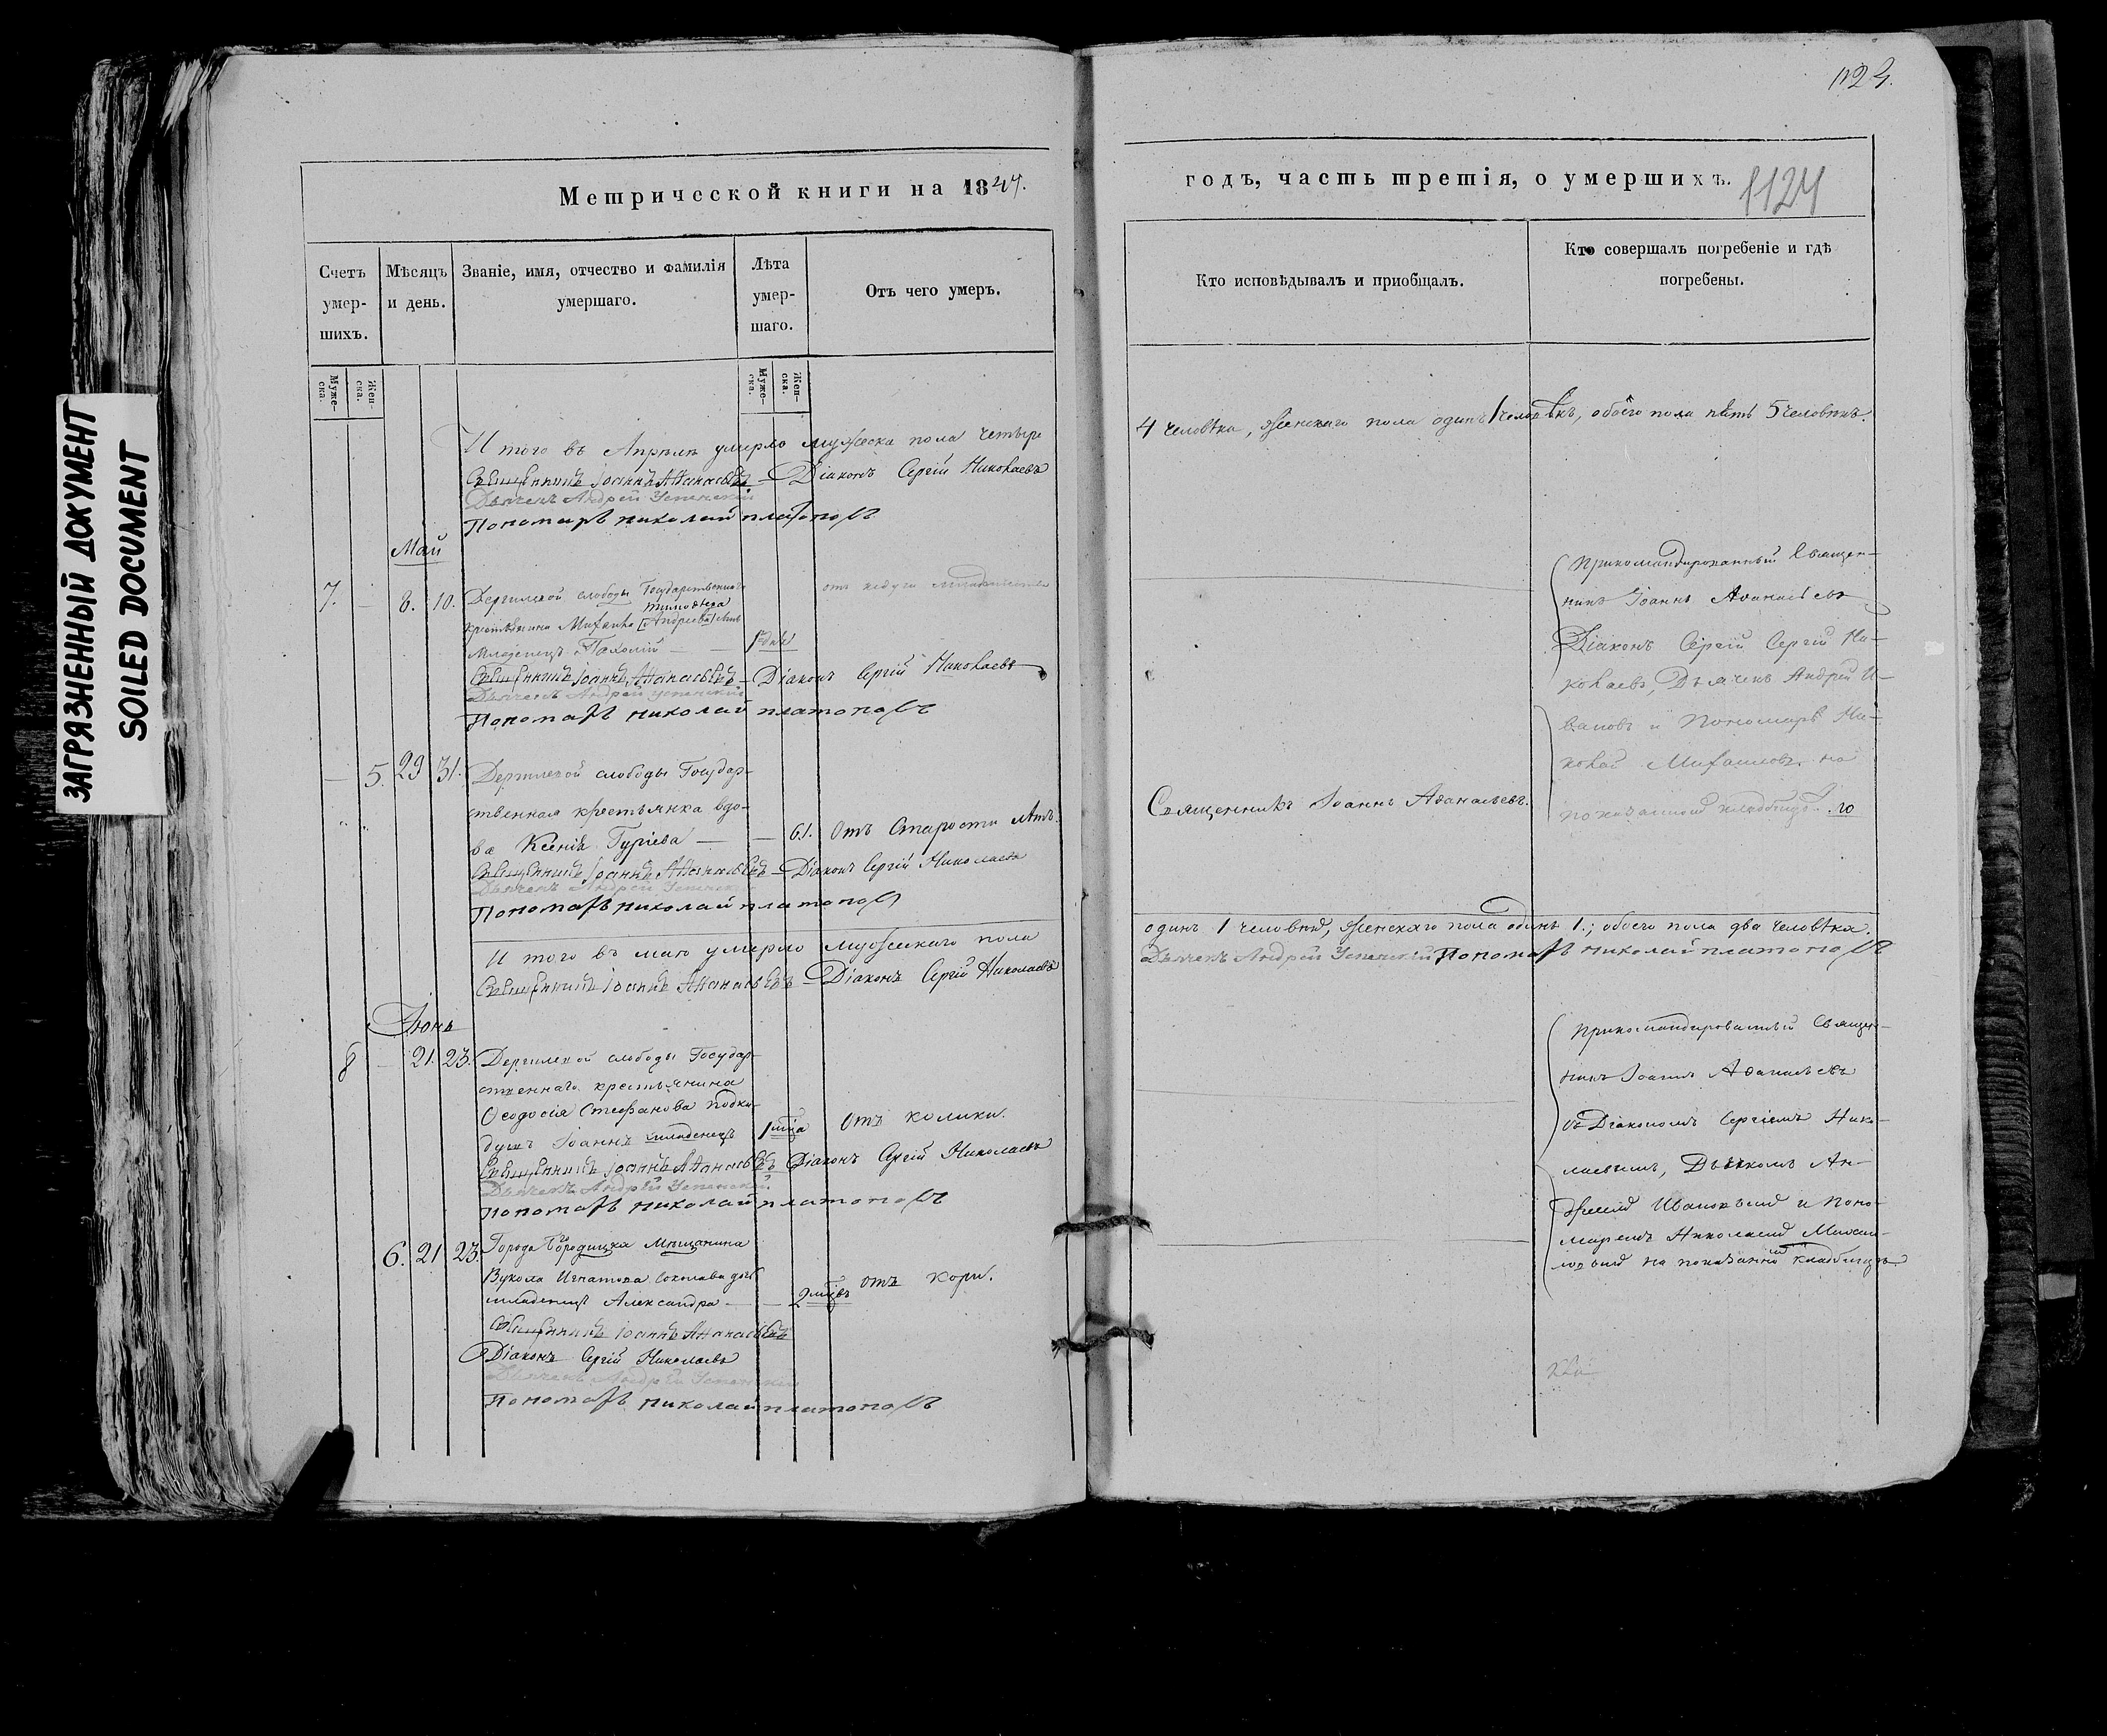 ЗАГРЯЗНЕННЫЙ ДОКУМЕНТ
SOILED DOCUMENT
Метрической книги на 1844.
Счетъ умер-шихъ.
Мѣсяцъ и день.
Званіе, имя, отчество и фамилія умершаго.
Лѣта умер-шаго.
Отъ чего умеръ.
Муже-ска.
Жен-ска.
Муже-ска.
Жен-ска.
И того въ Апрѣлѣ умерло мужеска пола четыре
Священникъ Іоаннъ Аѳанасьевъ Діаконъ Сергій Николаевъ
Дьячекъ Андрей Успенскій
Пономарь николай платоновъ
Май
7. — 8. 10. Государственнаго
Тимоѳеева
крестьянина Михаила [Андреева]
младенецъ
Священникъ Іоаннъ Аѳанасьевъ Діаконъ Сергій Николаевъ
Дьячекъ Андрей Успенскій
Пономарь николай платоновъ
— 5. 29 31. слободы Государ-
ственная крестьянка вдо-
ва Ксенія Гуріева — — 61. Отъ Старости лѣтъ
Священникъ Іоаннъ Аѳанасьевъ Діаконъ Сергій Николаевъ
Дьячекъ Андрей Успенскій
Пономарь николай платоновъ
И того въ маѣ умерло мужескаго пола
Священникъ Іоаннъ Аѳанасьевъ Діаконъ Сергій Николаевъ
Іюнь
8 — 21. 23. слободы Государ-
ственнаго крестьянина
Ѳеодосія Стефанова подки-
дышъ Іоаннъ младенецъ 1 мца Отъ колики.
Священникъ Іоаннъ Аѳанасьевъ Діаконъ Сергій Николаевъ
Дьячекъ Андрей Успенскій
Пономарь николай платоновъ
6. 21 23. Города Мѣщанина
Вукола Игнатова Соколова дочь
младенецъ Александра — — 2 мцвъ отъ кори.
Священникъ Іоаннъ Аѳанасьевъ
Діаконъ Сергій Николаевъ
Дьячекъ Андрей Успенскій
Пономарь николай платоновъ
1123.
годъ, часть третія, о умершихъ.
1124
Кто исповѣдывалъ и приобщалъ.
Кто совершалъ погребеніе и гдѣ погребены.
4 человѣка, женскаго пола одинъ 1 человѣкъ, обоего пола пять 5 человѣкъ.
Прикомандированный Священ-
никъ Іоаннъ Аѳанасьевъ
Діаконъ Сергій Сергій Ни-
колаевъ, Дьячекъ Андрей И-
вановъ и Пономарь Ни-
колай Михаиловъ на
Священникъ Іоаннъ Аѳанасьевъ.
показанномъ кладбищѣ
одинъ 1 человѣкъ, женскаго пола одинъ 1.; обоего пола два человѣка.
Дьячекъ Андрей Успенскій Пономарь николай платоновъ
Прикомандированный Священ-
никъ Іоаннъ Аѳанасьевъ
съ Діакономъ Сергіемъ Нико-
лаевымъ, Дьячкомъ Ан-
дреемъ Ивановымъ и Поно-
маремъ Николаемъ Михаи-
ловымъ на показанномъ кладбищѣ.